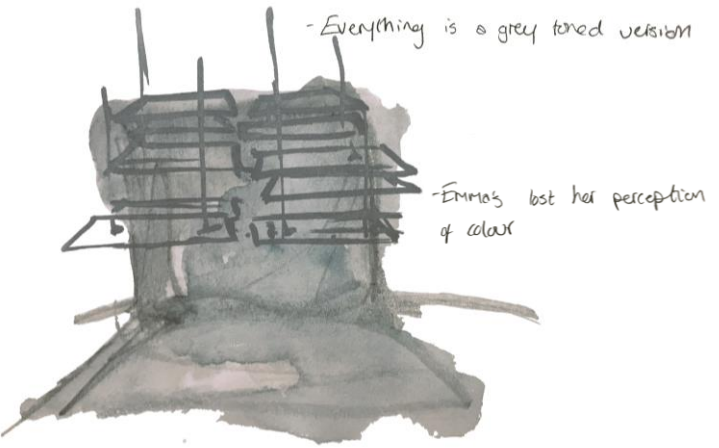 - Everything is a grey toned version
- Emma's lost her perception
of colour